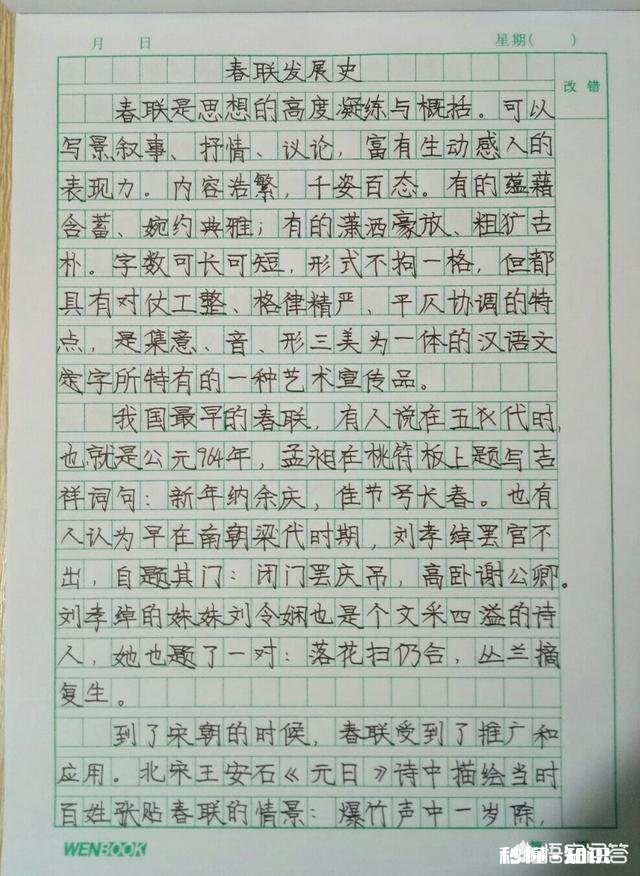 月 日 星期( )
春联发展史
改错
春联是思想的高度凝练与概括。可以
写景叙事、抒情、议论，富有生动感人的
表现力。内容浩繁，千姿百态。有的蕴藉
含蓄、婉约典雅；有的潇洒豪放、粗犷古
朴。字数可长可短，形式不拘一格，但都
具有对仗工整、格律精严、平仄协调的特
点，是集意、音、形三美为一体的汉语文
字所特有的一种艺术宣传品。
我国最早的春联，有人说在五代时，
也就是公元964年，孟昶在桃符板上题写吉
祥词句：新年纳余庆，佳节号长春。也有
人认为早在南朝梁代时期，刘孝绰罢官不
出，自题其门：闭门罢庆吊，高卧谢公卿。
刘孝绰的妹妹刘令娴也是个文采四溢的诗
人，她也题了一对：落花扫仍合，丛兰摘
复生。
到了宋朝的时候，春联受到了推广和
应用。北宋王安石《元日》诗中描绘当时
百姓张贴春联的情景：爆竹声中一岁除，
WENBOOK
悟空问答
秒懂·知识